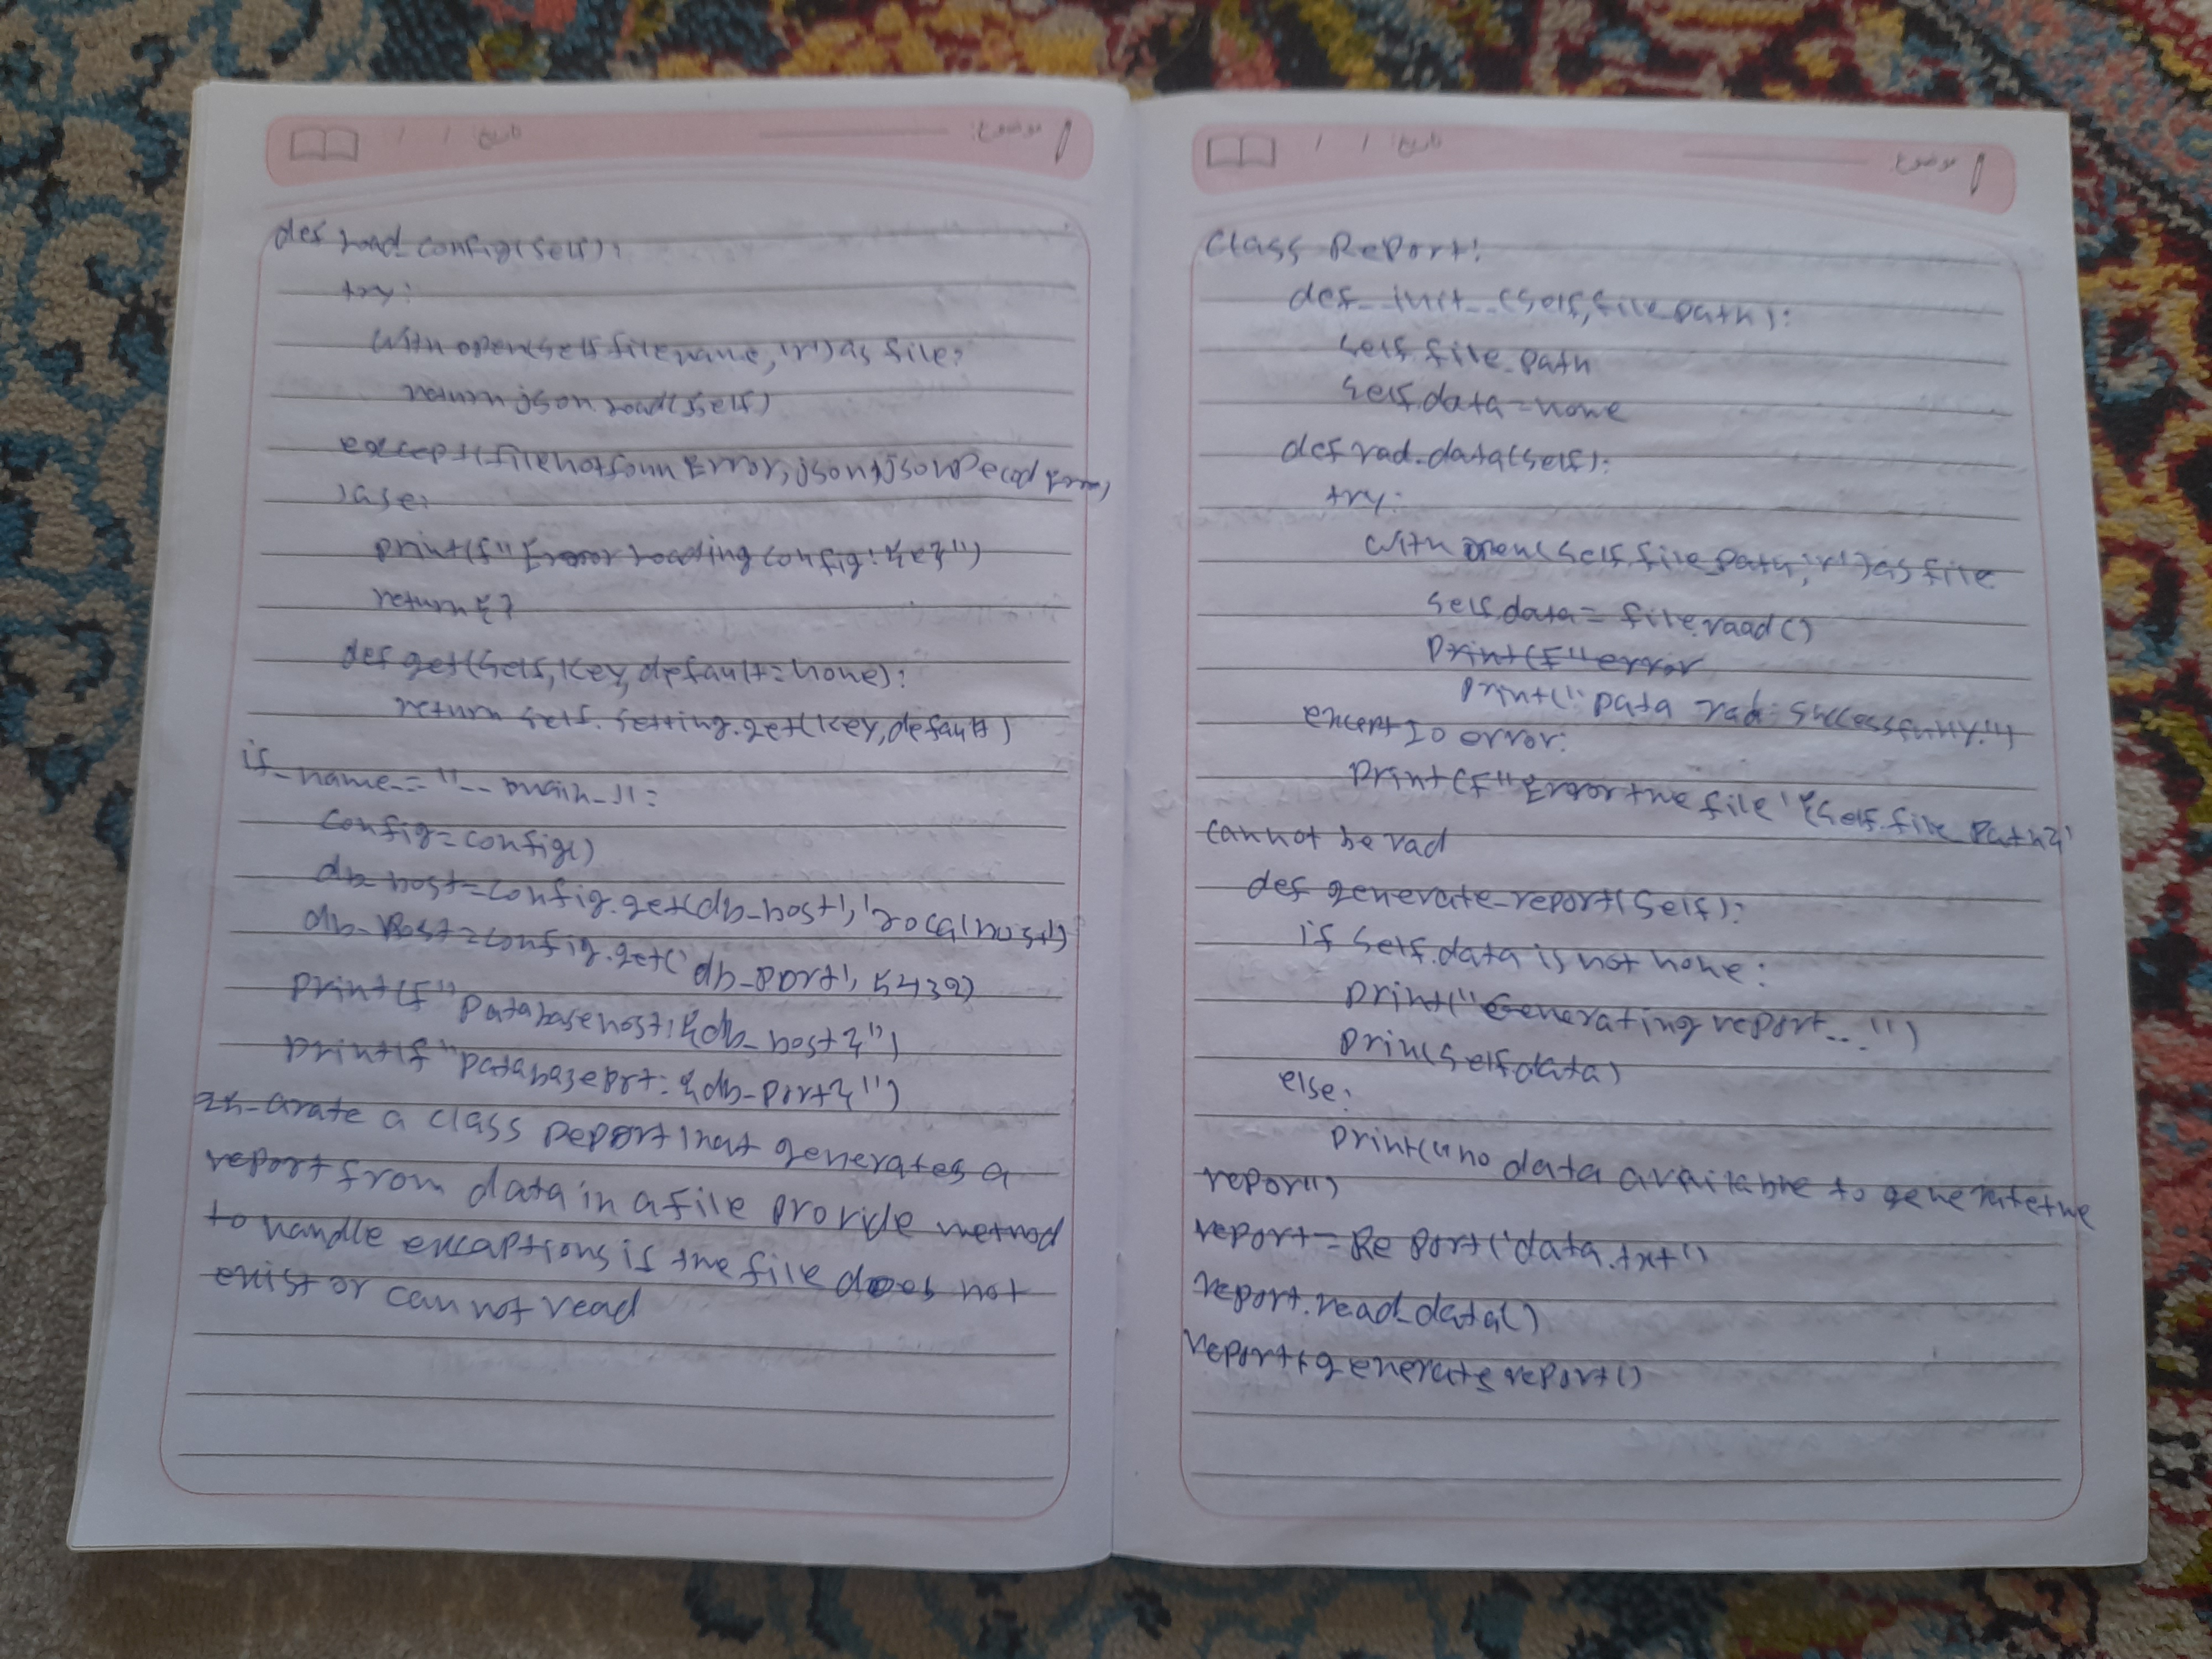 def load config(self):
try:
with open(self.filename, 'r') as file:
return json.load(self)
except (FileNotFoundError, json.JSONDecodError,
print(f"Error loading config: {e}")
return {}
def get(self, key, default=none):
return self.setting.get(key, default)
if_name_=="__main__":
config=config()
db-host=config.get(db_host', 'localhost')
db-Post=config.get('db_port', 5432)
Print(f"Databasehost:{db_host}")
print(f"Databaseport:{db_port}")
report from data in a file provide method
class Report that generates a
to handle exceptions is the file does not
exist or can not read
Class Report:
def__init__(self,filepath):
self.file_path
self.data=none
def read_data(self):
try:
with open(self.file_path,'r')as file
self.data=file.read()
print(f"error
print("Data read successfully.")
except IO error:
Print(f"Error the file '{self.file_path}'
cannot be read
def generate-report(self):
if self.data is not none:
print("Generating report..")
print(self.data)
else:
print("no data available to generate the
report")
report=Report('data.txt')
report.read_data()
report.generate_report()